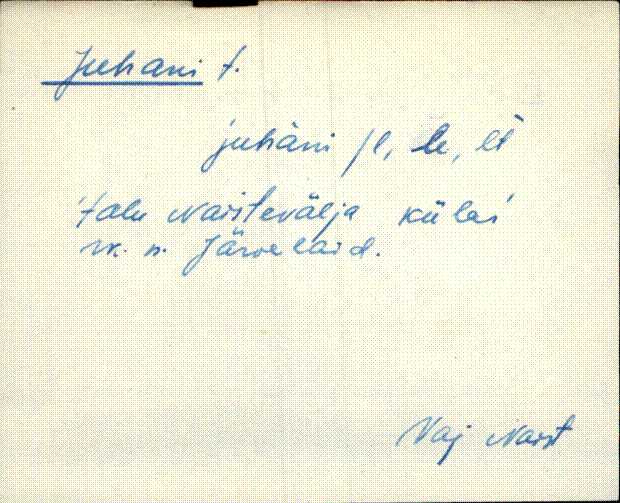 Juhani t.
juhani /l, le, lt
talu Naistevälja külas
m. n. Järvelaid.
Vaj Naist